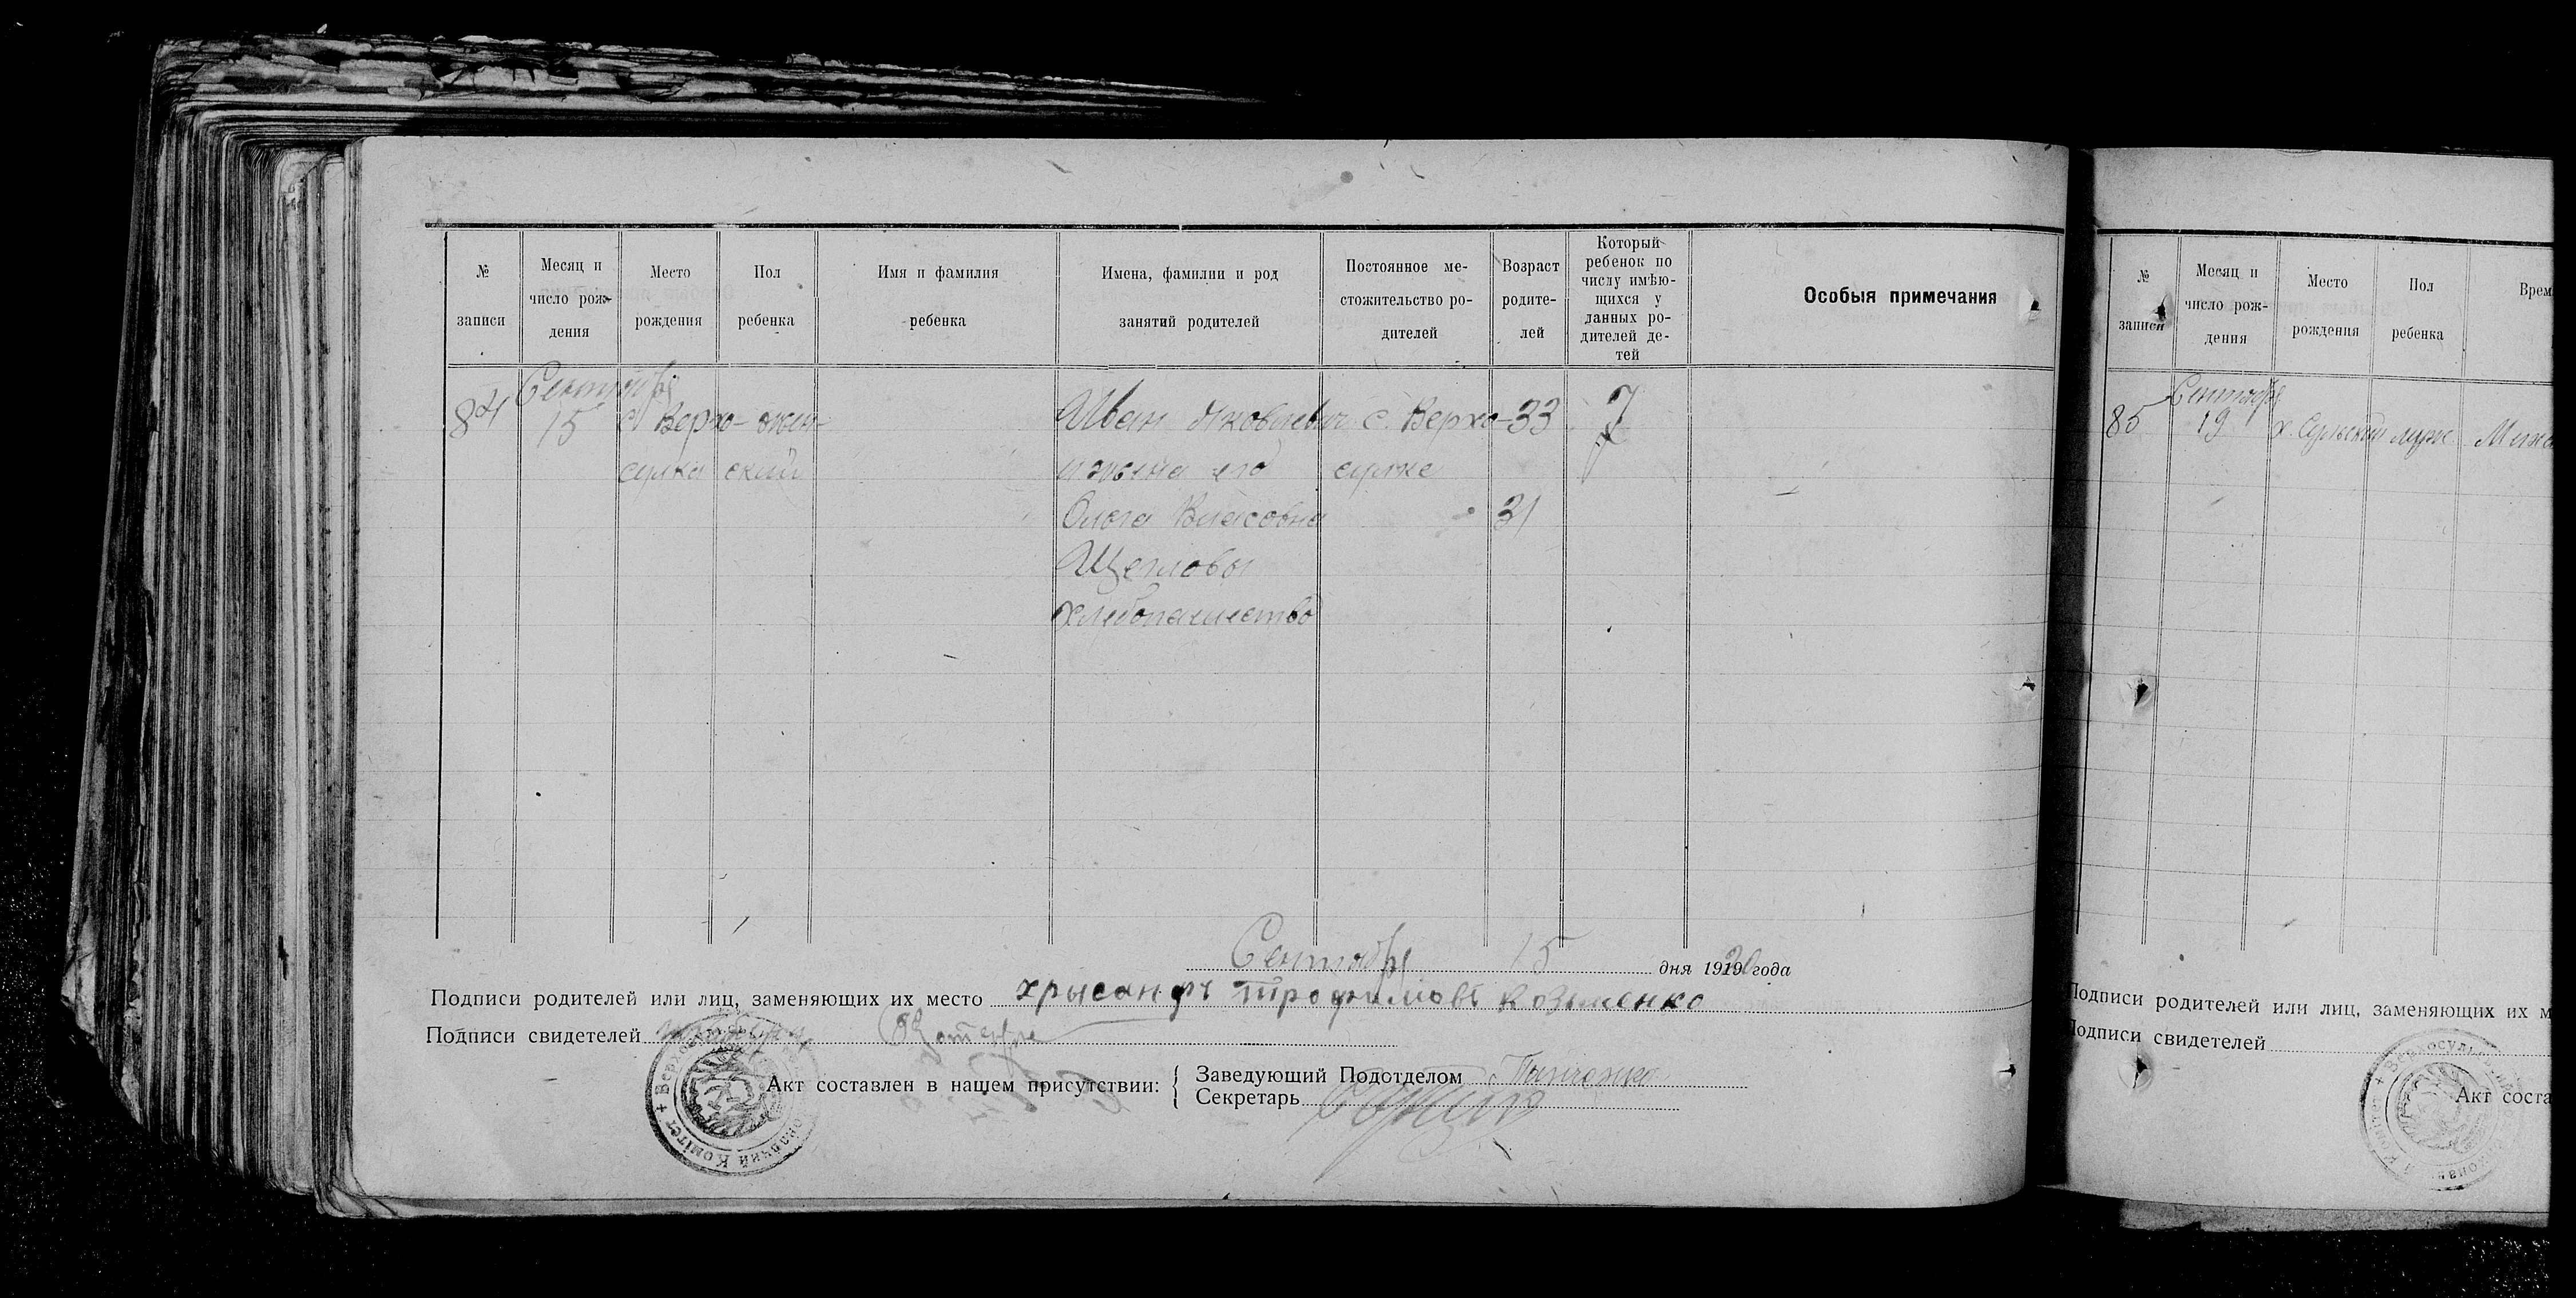 № записи
Месяц и число рождения
Место рождения
Пол ребенка
Имя и фамилия ребенка
Имена, фамилии и род занятий родителей
Постоянное местожительство родителей
Возраст родителей
Который ребенок по числу имѣющихся у данных родителей детей
Особыя примечания
84
Сентября
15
с Верхо-
сулка
жен-
ский
Иван Яковлевич
и жена его
Ольга Власовна
Щегловы
хлебопашество
с. Верхо-
сулке
33
31
7
Сентября 15 дня 1920 года
Подписи родителей или лиц, заменяющих их место хрысанфъ трофимовъ Козменко
Подписи свидетелей
Акт составлен в нашем присутствии:
Заведующий Подотделом
Секретарь
№ записи
Месяц и число рождения
Место рождения
Пол ребенка
Врем
85
Сентября
19
муж
Подписи родителей или лиц, заменяющих их м
Подписи свидетелей
Акт соста